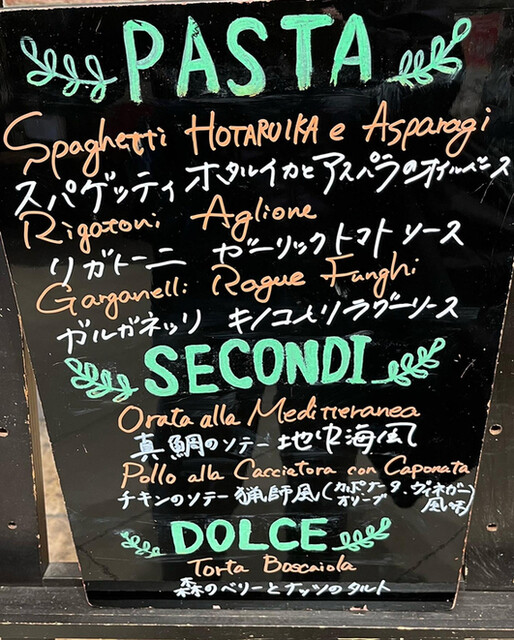 PASTA
Spaghetti HOTARUIKA e Asparagi
スパゲッティ ホタルイカとアスパラのオイルベース
Rigatoni Aglione
リガトーニ ガーリックトマトソース
Garganelli Rague Funghi
ガルガネッリ キノコ入りラグーソース
SECONDI
Orata alla Mediterranea
真鯛のソテー 地中海風
Pollo alla Cacciatora con Caponata
チキンのソテー 猟師風(カポナータ、ヴィネガー
オリーブ 風味)
DOLCE
Torta Boscaiola
森のベリーとナッツのタルト